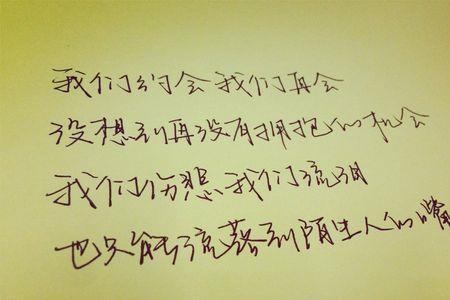 我们约会 我们再会
没想到再没有拥抱的机会
我们伤悲 我们流泪
也只能流落到陌生人的嘴